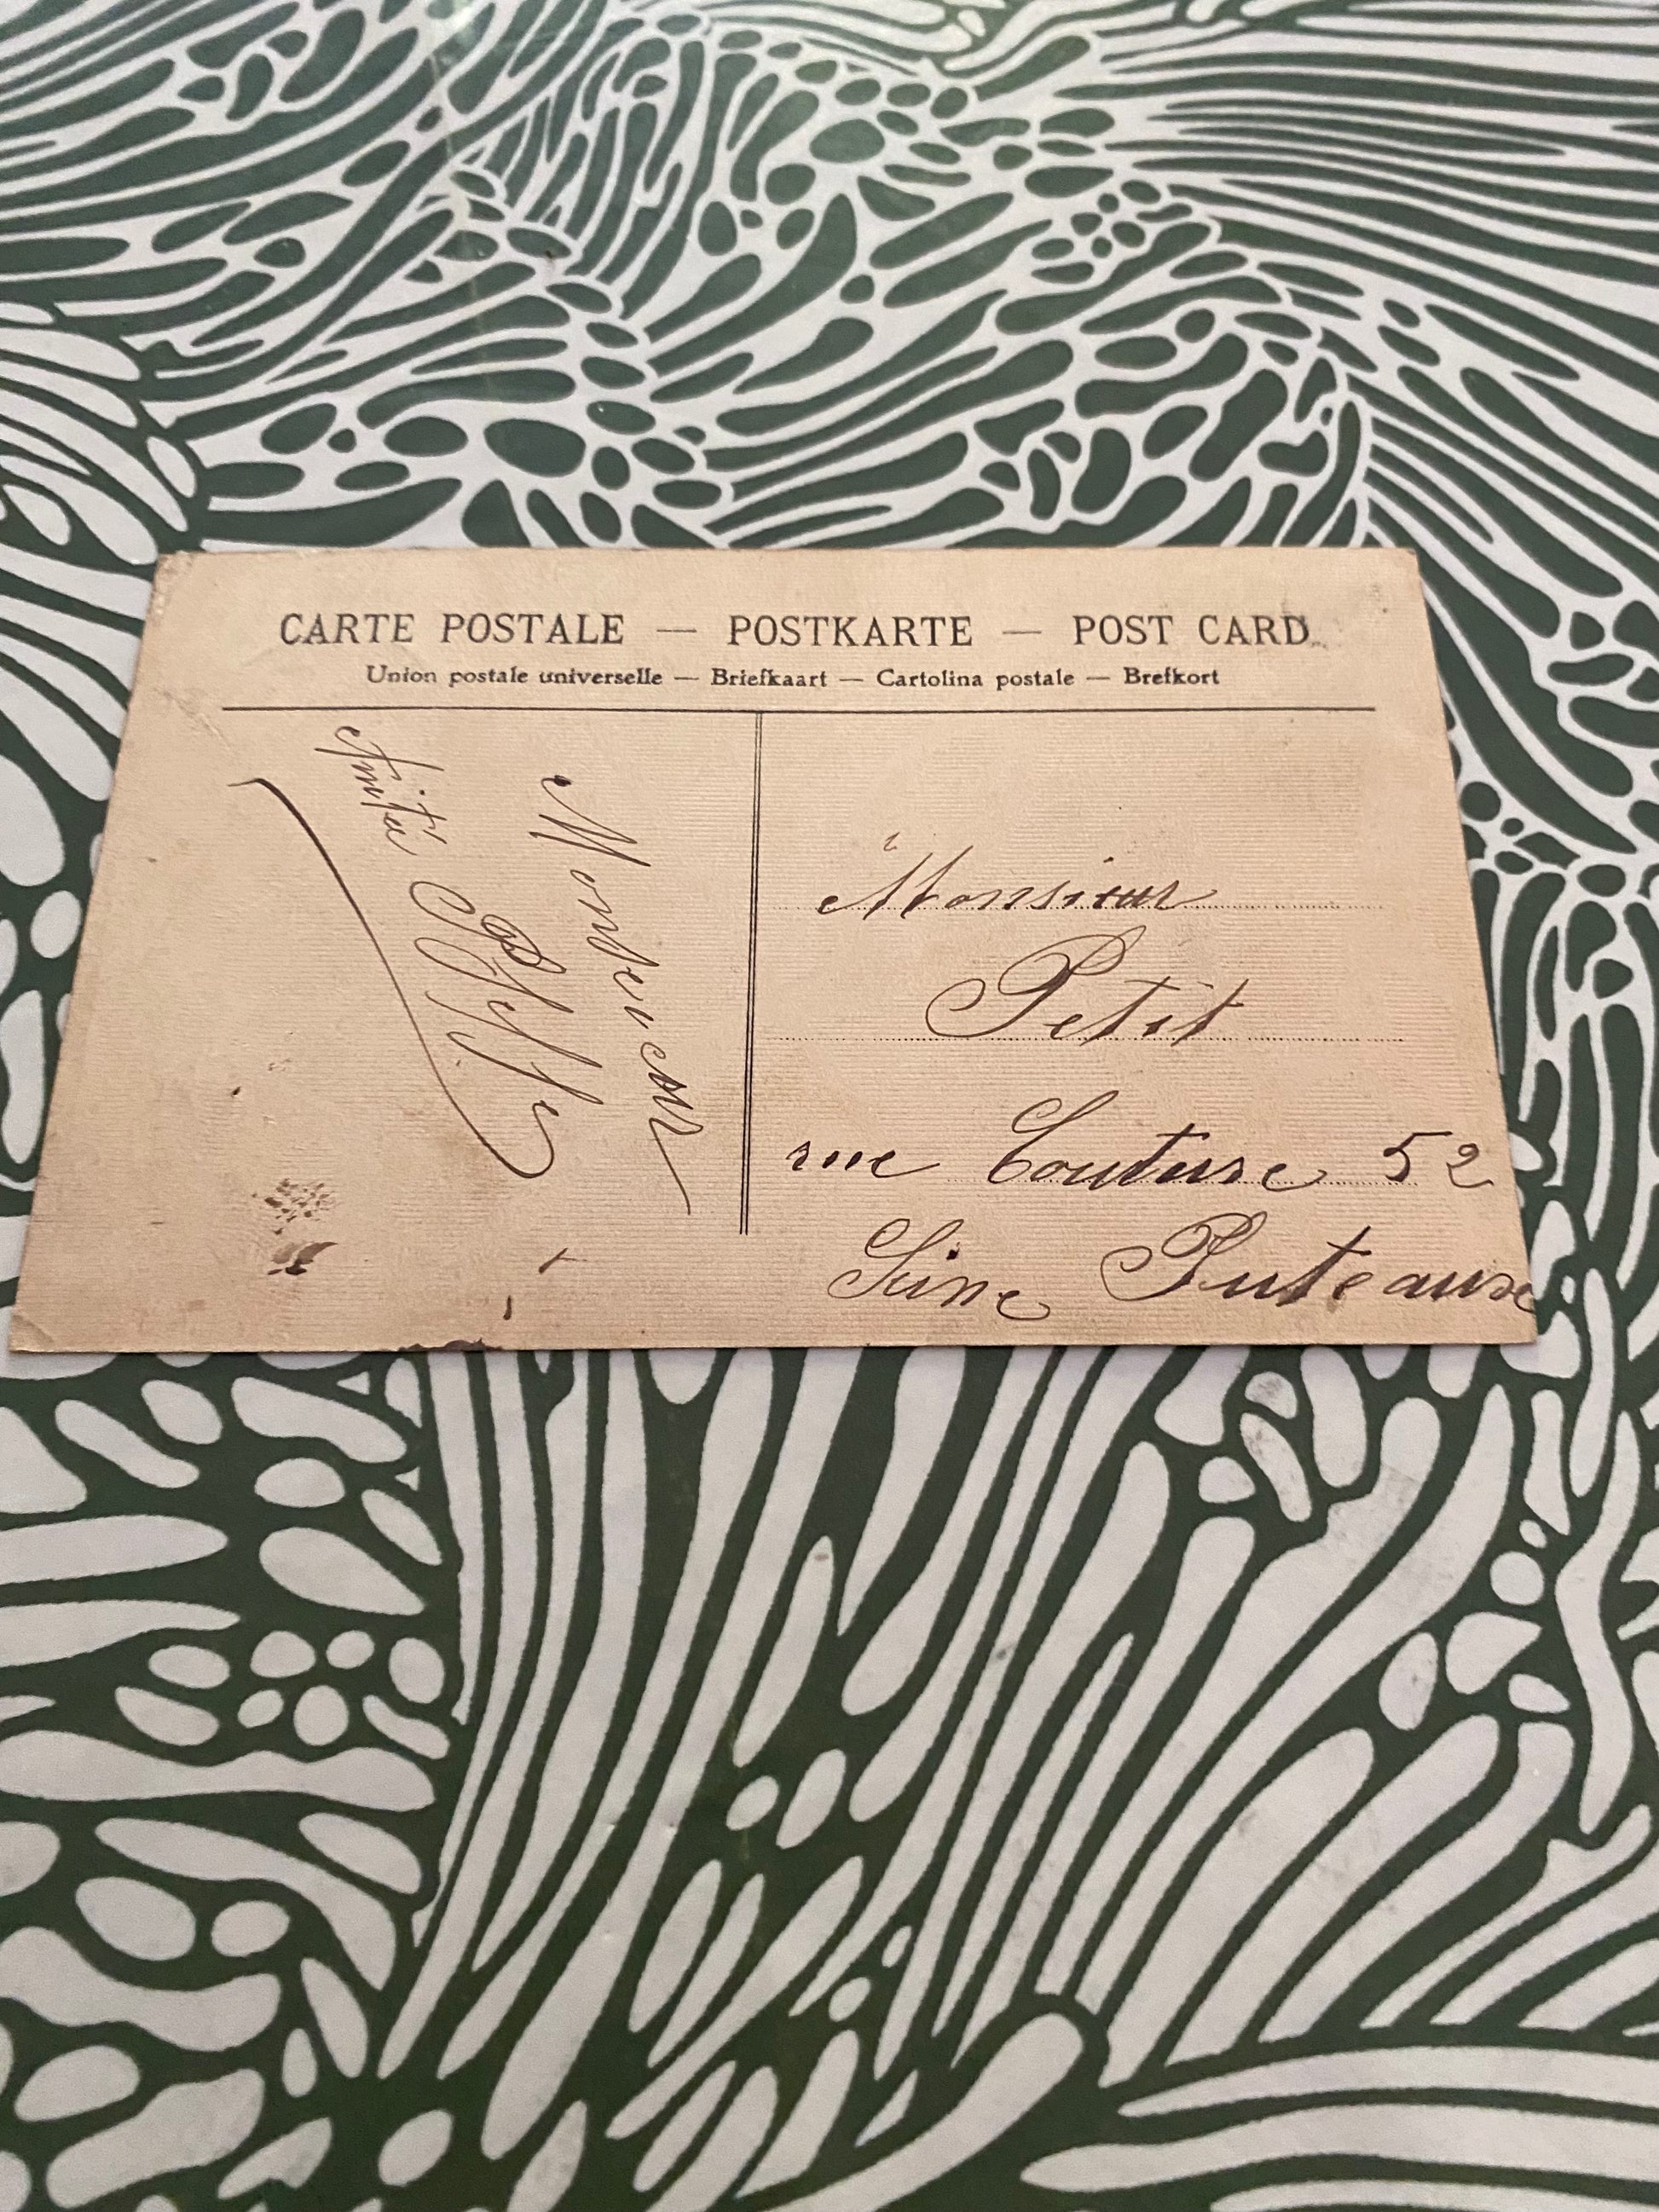 CARTE POSTALE — POSTKARTE — POST CARD
Union postale universelle — Briefkaart — Cartolina postale — Brefkort
Monsieur
Amitié
Monsieur
Petit
rue Couture 52
Seine Puteaux